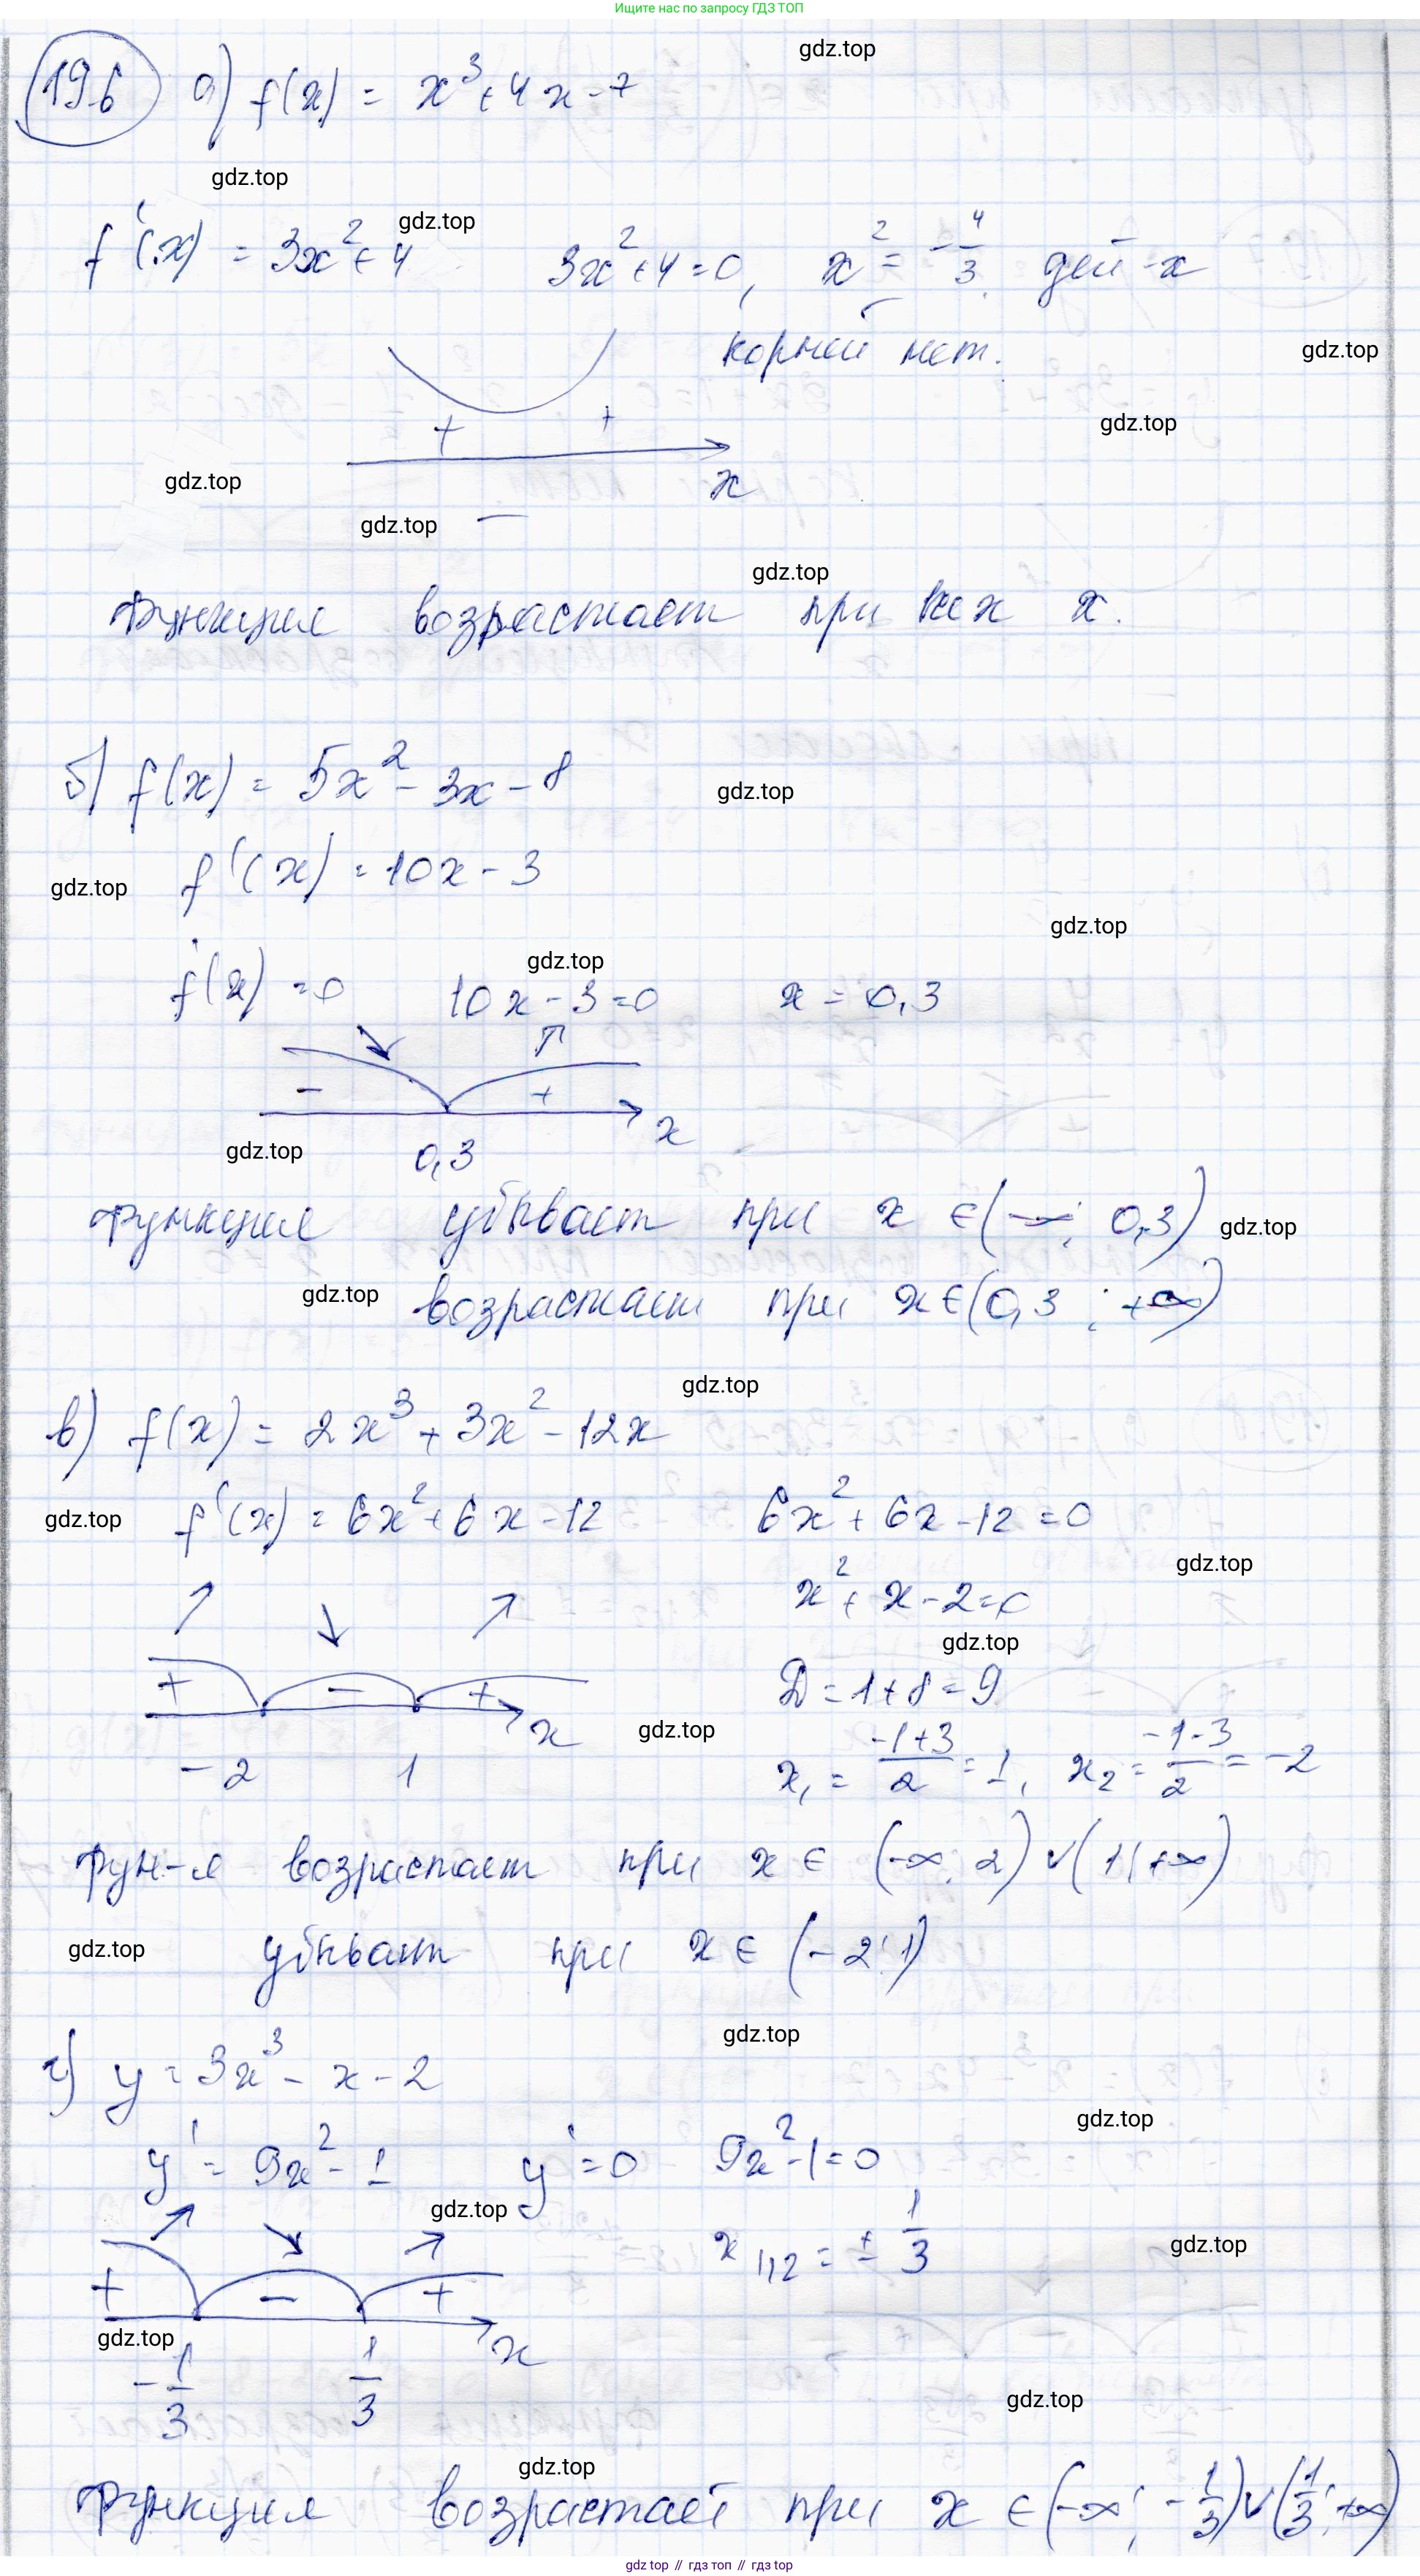 Ищите нас по запросу ГДЗ ТОП
gdz.top
19.6 а) f(x) = x³ + 4x - 7
gdz.top
gdz.top
f'(x) = 3x² + 4 3x² + 4 = 0, x² = -4/3. дей-х
корней нет.
gdz.top
gdz.top
+ +
gdz.top
x
gdz.top
-
gdz.top
Функция возрастает при всех x.
б) f(x) = 5x² - 3x - 8
gdz.top
f'(x) = 10x - 3
gdz.top
gdz.top
gdz.top
f'(x) = 0 10x - 3 = 0 x = 0,3
- +
x
gdz.top
0,3
функция убывает при x ∈ (-∞; 0,3)
gdz.top
gdz.top
возрастает при x ∈ (0,3 ; +∞)
gdz.top
в) f(x) = 2x³ + 3x² - 12x
gdz.top
f'(x) = 6x² + 6x - 12 6x² + 6x - 12 = 0
gdz.top
x² + x - 2 = 0
gdz.top
+ - +
D = 1 + 8 = 9
x
gdz.top
-2 1
x₁ = (-1+3)/2 = 1, x₂ = (-1-3)/2 = -2
фун-я возрастает при x ∈ (-∞; 2) ∪ (1; +∞)
gdz.top
убывает при x ∈ (-2; 1)
gdz.top
г) y = 3x³ - x - 2
gdz.top
y' = 9x² - 1 y' = 0 9x² - 1 = 0
gdz.top
x₁,₂ = ± 1/3
gdz.top
+ - +
gdz.top
x
-1/3 1/3
gdz.top
gdz.top
Функция возрастает при x ∈ (-∞; -1/3) ∪ (1/3; +∞)
gdz.top // гдз топ // gdz.top